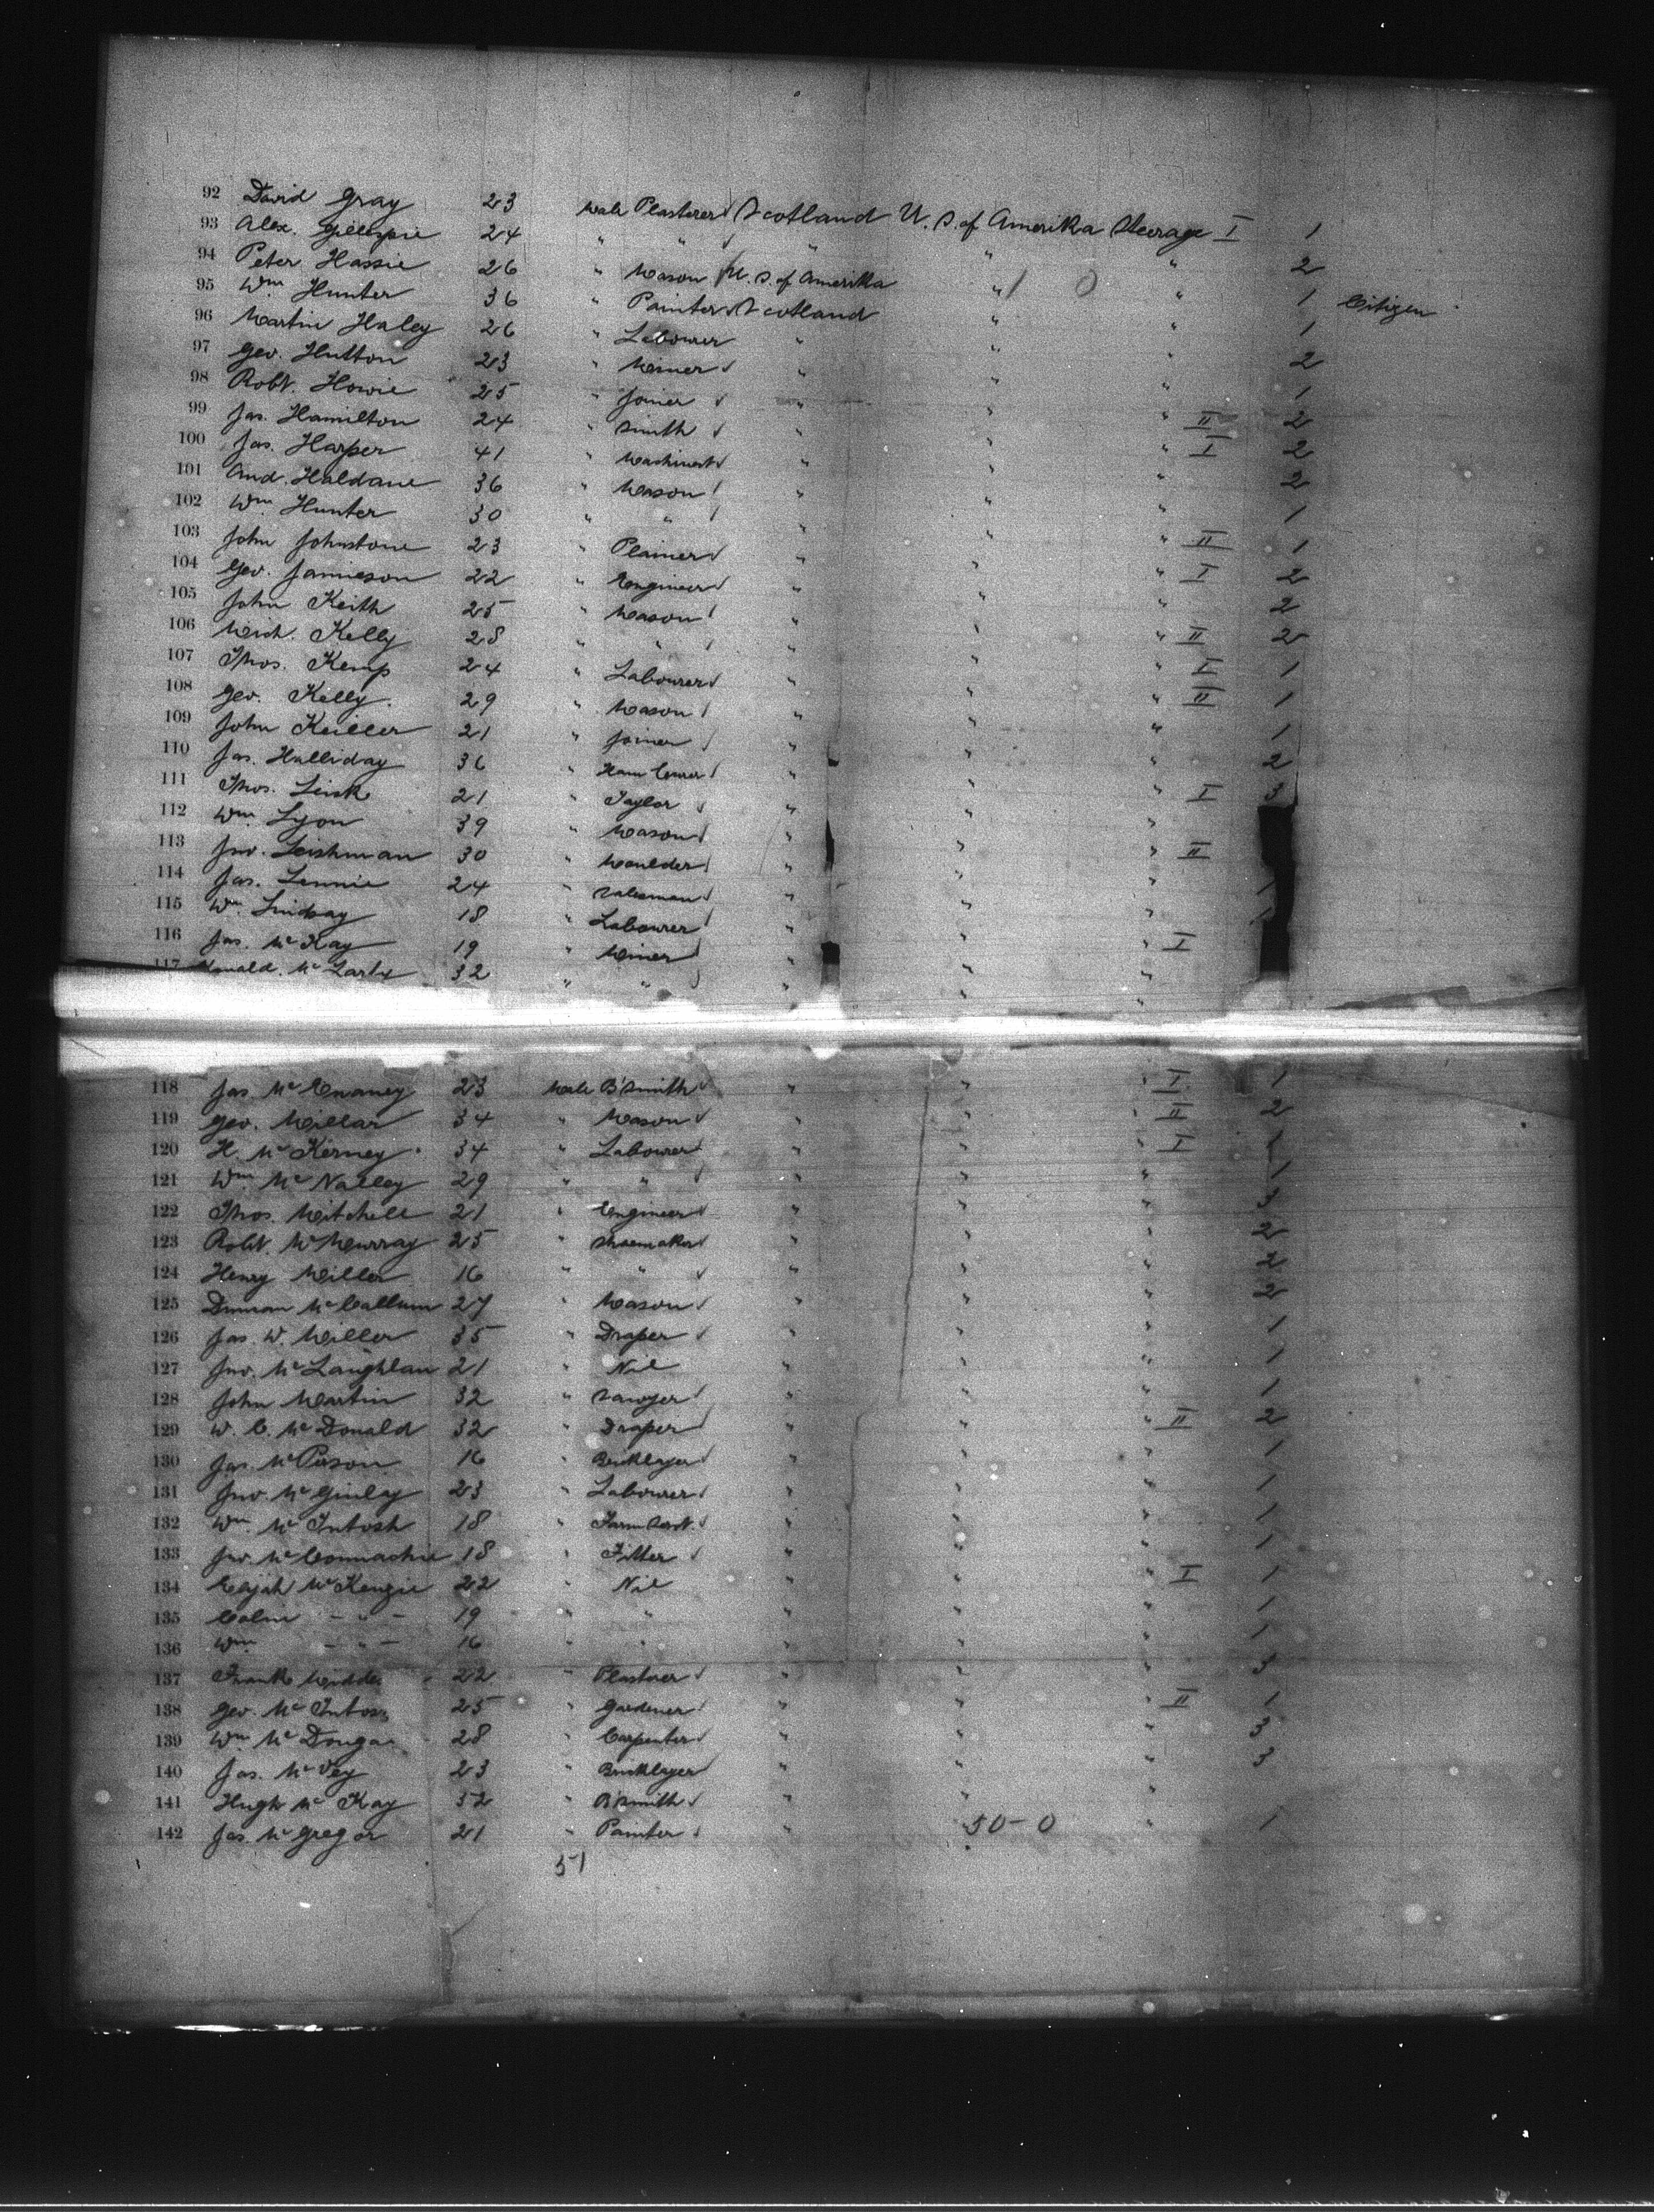 92 David Gray 23 Male Plasterer Scotland U. S. of Amerika Steerage I 1
93 Alex. Gillespie 24 " " " " " 2
94 Peter Hassie 26 " Mason U. S. of Amerika " 1 0 " 1 Citizen
95 Wm Hunter 36 " Painter Scotland " " 1
96 Martin Haley 26 " Labourer " " " 2
97 Geo. Hutton 23 " Miner " " " 1
98 Robt. Howie 25 " Joiner " " " II 2
99 Jas. Hamilton 24 " Smith " " " I 2
100 Jas. Harper 41 " Machinist " " " 2
101 And. Haldane 36 " Mason " " " 1
102 Wm Hunter 30 " " " " " II 1
103 John Johnstone 23 " Plainer " " " I 2
104 Geo. Jamieson 22 " Engineer " " " 2
105 John Keith 25 " Mason " " " II 2
106 Mich. Kelly 28 " " " " " I 1
107 Thos. Kemp 24 " Labourer " " " II 1
108 Geo. Kelly 29 " Mason " " " 1
109 John Keiller 21 " Joiner " " " 2
110 Jas. Halliday 36 " Ham Curer " " " I 3
111 Thos. Leisk 21 " Taylor " " "
112 Wm Lyon 39 " Mason " " " II
113 Jno. Leishman 30 " Moulder " " "
114 Jas. Lennie 24 " Salesman " " "
115 Wm Lindsay 18 " Labourer " " " I
116 Jas. McKay 19 " Miner " " "
117 Donald McLarty 32 " " " " "
118 Jas. McEnaney 23 Male B'Smith " " " I 1
119 Geo. Millar 34 " Mason " " " II 2
120 H. McKerney 34 " Labourer " " " I 1
121 Wm McNalley 29 " " " " " 1
122 Thos. Mitchell 21 " Engineer " " " 3
123 Robt. McMurray 25 " Shoemaker " " " 2
124 Henry Miller 16 " " " " " 2
125 Duncan McCallum 27 " Mason " " " 2
126 Jas. W. Miller 35 " Draper " " " 1
127 Jno. McLaughlan 21 " Nil " " " 1
128 John Martin 32 " Sawyer " " " 1
129 W. C. McDonald 32 " Draper " " " II 2
130 Jas. McPerson 16 " Bricklayer " " " 1
131 Jno. McGinlay 23 " Labourer " " " 1
132 Wm McIntosh 18 " Farm Servt. " " " 1
133 Jno. McConnachie 18 " Fitter " " " 1
134 Elijah McKenzie 22 " Nil " " " I 1
135 Colin - " - 19 " " " " " 1
136 Wm - " - 16 " " " " " 1
137 Frank 22 " Plasterer " " " 3
138 Geo. McIntos 25 " Gardener " " " II 1
139 Wm McDouga 28 " Carpenter " " " 3
140 Jas. McVey 23 " Bricklayer " " " 3
141 Hugh McKay 52 " B'Smith " " "
142 Jas. McGregor 21 " Painter " 50-0 " 1
51